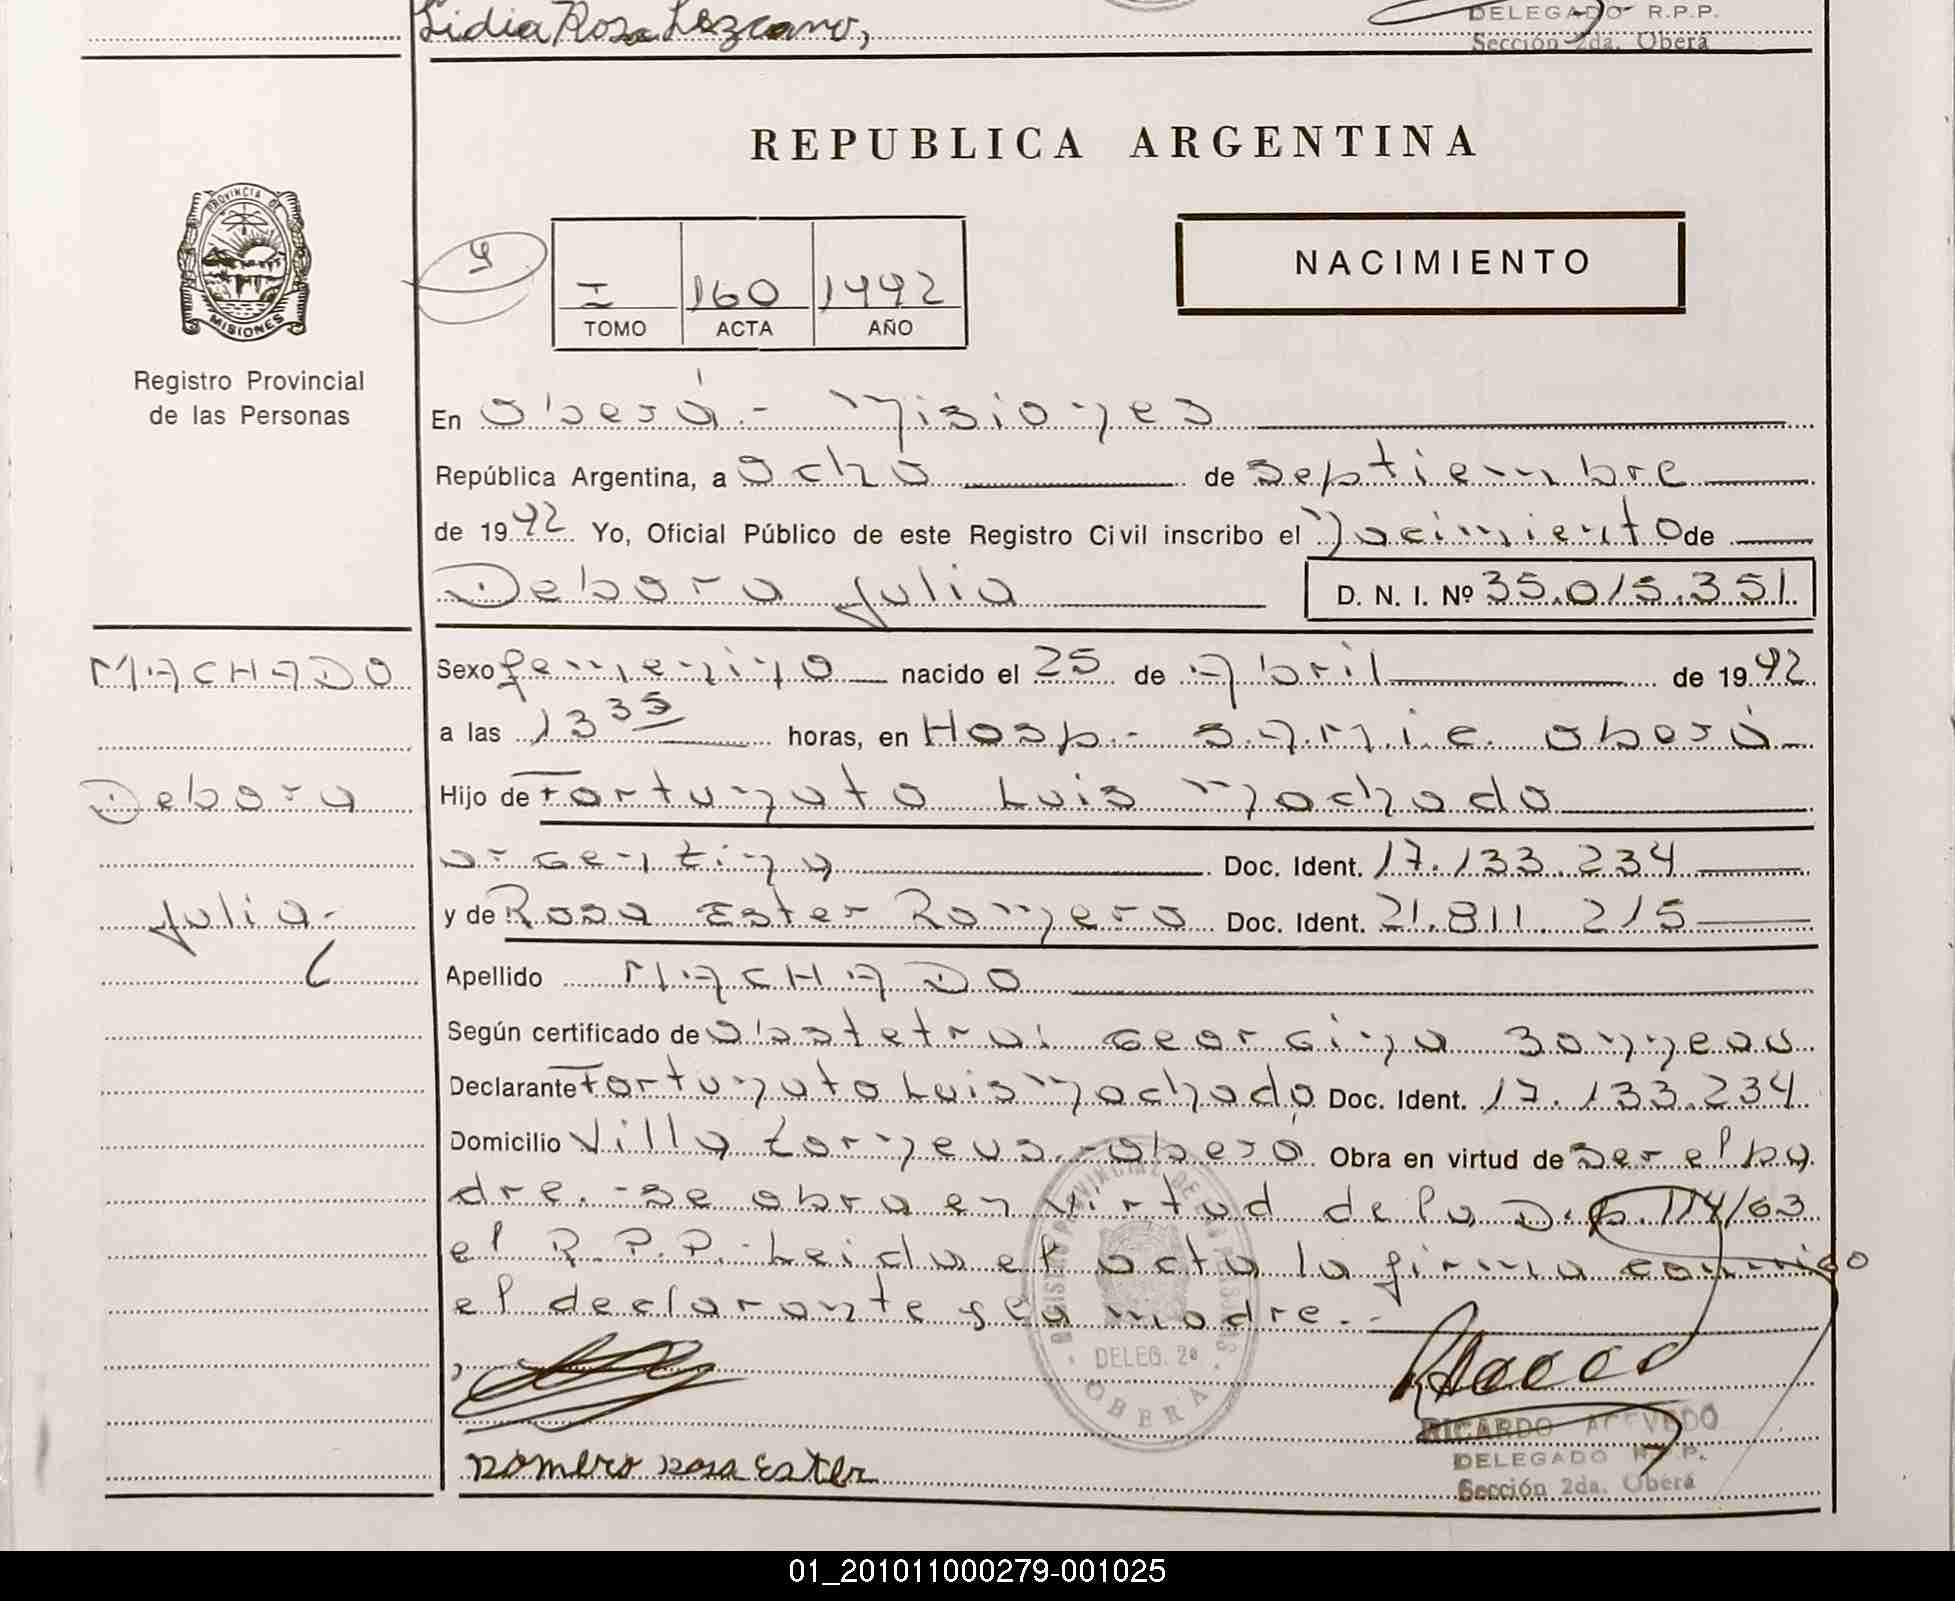 Lidia Rosa Lezcano,
DELEGADO R.P.P.
Sección 2da. Oberá
REPUBLICA ARGENTINA
PROVINCIA DE
MISIONES
Registro Provincial
de las Personas
I 160 1992
TOMO ACTA AÑO
NACIMIENTO
En Oberá - Misiones
República Argentina, a Ocho de Septiembre
de 1992 Yo, Oficial Público de este Registro Civil inscribo el Nacimiento de
Debora Julia D. N. I. Nº 35.015.351
MACHADO
Debora
Julia.-
Sexo femenino nacido el 25 de Abril de 1992
a las 13 35 horas, en Hosp.- S.A.M.i.c. Oberá
Hijo de Fortunato Luis Machado
argentina Doc. Ident. 17.133.234
y de Rosa Ester Romero Doc. Ident. 21.811.215
Apellido MACHADO
Según certificado de Obstetra: Georgina
Declarante Fortunato Luis Machado Doc. Ident. 17.133.234
Domicilio Villa - Oberá Obra en virtud de ser el pa
dre.- Se obra en virtud de la D.p. 114/63
el R.P.P.- Leida el acta la firma conmigo
el declarante y la madre.-
DELEG. 2ª
OBERA
RICARDO ACEVEDO
DELEGADO R.P.P.
Sección 2da. Oberá
Romero Rosa Ester
01_201011000279-001025